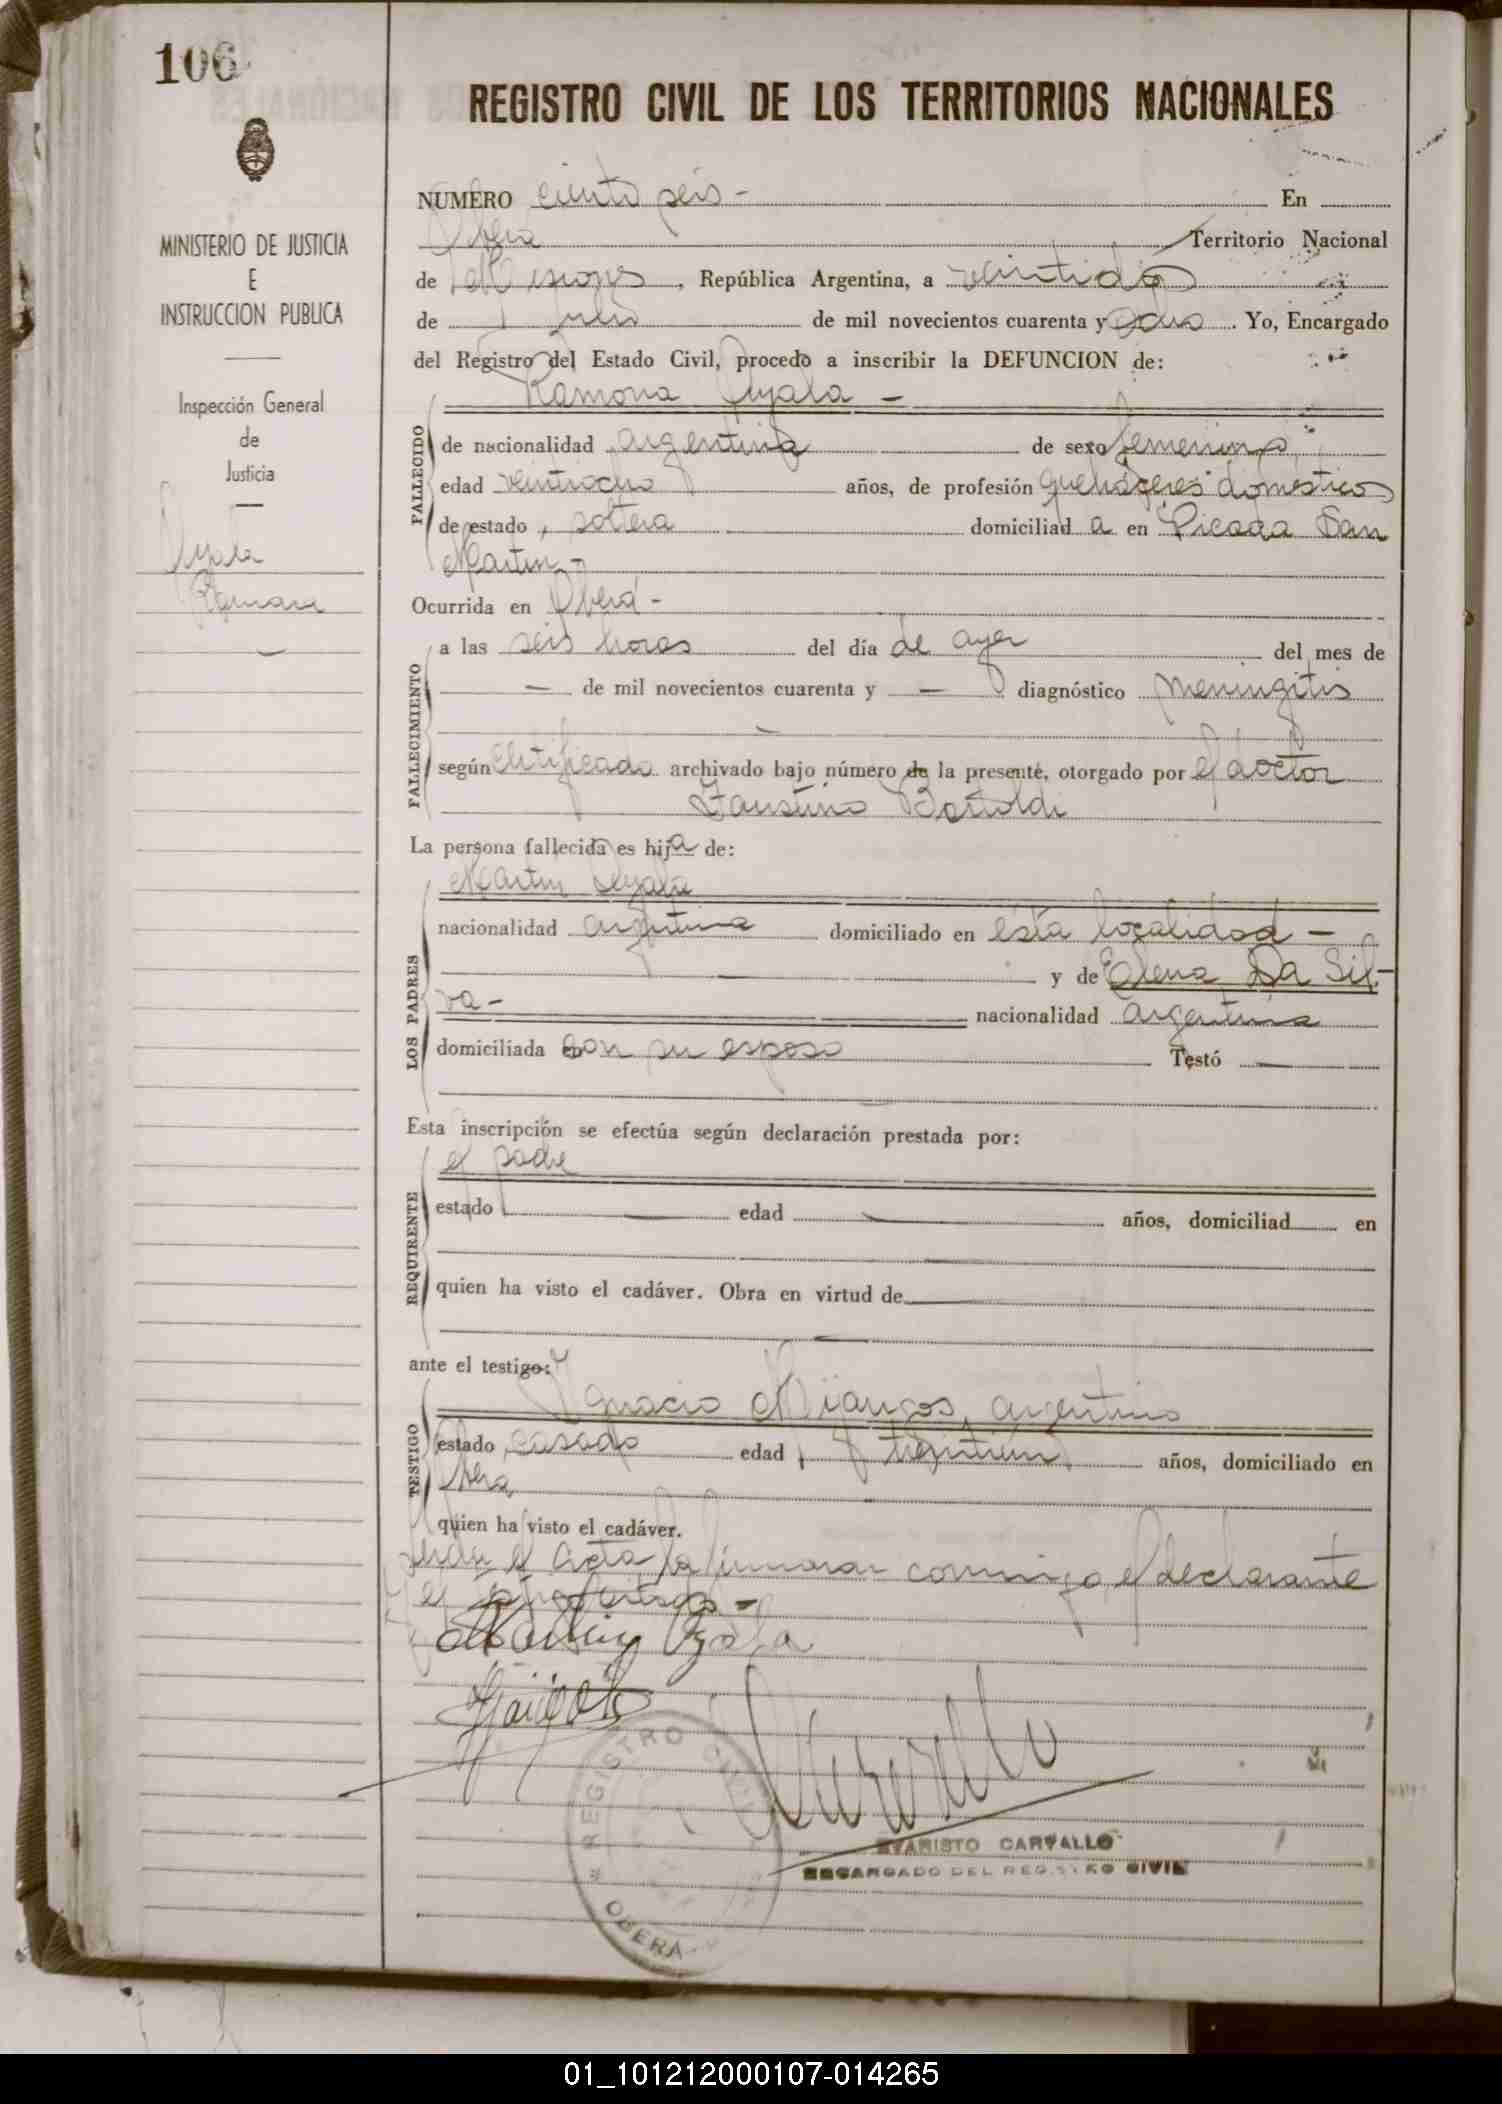 106
REGISTRO CIVIL DE LOS TERRITORIOS NACIONALES
MINISTERIO DE JUSTICIA
E
INSTRUCCION PUBLICA
Inspección General
de
Justicia
Ayala
Ramona
NUMERO ciento seis - En
Oberá Territorio Nacional
de Misiones, República Argentina, a veintidós
de julio de mil novecientos cuarenta y ocho. Yo, Encargado
del Registro del Estado Civil, procedo a inscribir la DEFUNCION de:
Ramona Ayala -
FALLECIDO
de nacionalidad argentina de sexo femenino
edad veintiocho años, de profesión quehaceres domésticos
de estado soltera domiciliad a en Picada San
Martin -
Ocurrida en Oberá -
FALLECIMIENTO
a las seis horas del día de ayer del mes de
— de mil novecientos cuarenta y — diagnóstico meningitis
según certificado archivado bajo número de la presente, otorgado por el doctor
Faustino Bartoldi
La persona fallecida es hija de:
LOS PADRES
Martin Ayala
nacionalidad argentina domiciliado en esta localidad -
y de Elena Da Sil-
va -
nacionalidad argentina
domiciliada con su esposo Testó
Esta inscripción se efectúa según declaración prestada por:
REQUIRENTE
el padre
estado edad años, domiciliad en
quien ha visto el cadáver. Obra en virtud de
ante el testigo:
TESTIGO
Ignacio Mijangos, argentino
estado casado edad treintiun años, domiciliado en
Oberá
quien ha visto el cadáver.
el acta la firmaron conmigo el declarante
Martin Ayala
REGISTRO CIVIL
OBERA
EVARISTO CARVALLO
ENCARGADO DEL REGISTRO CIVIL
01_101212000107-014265